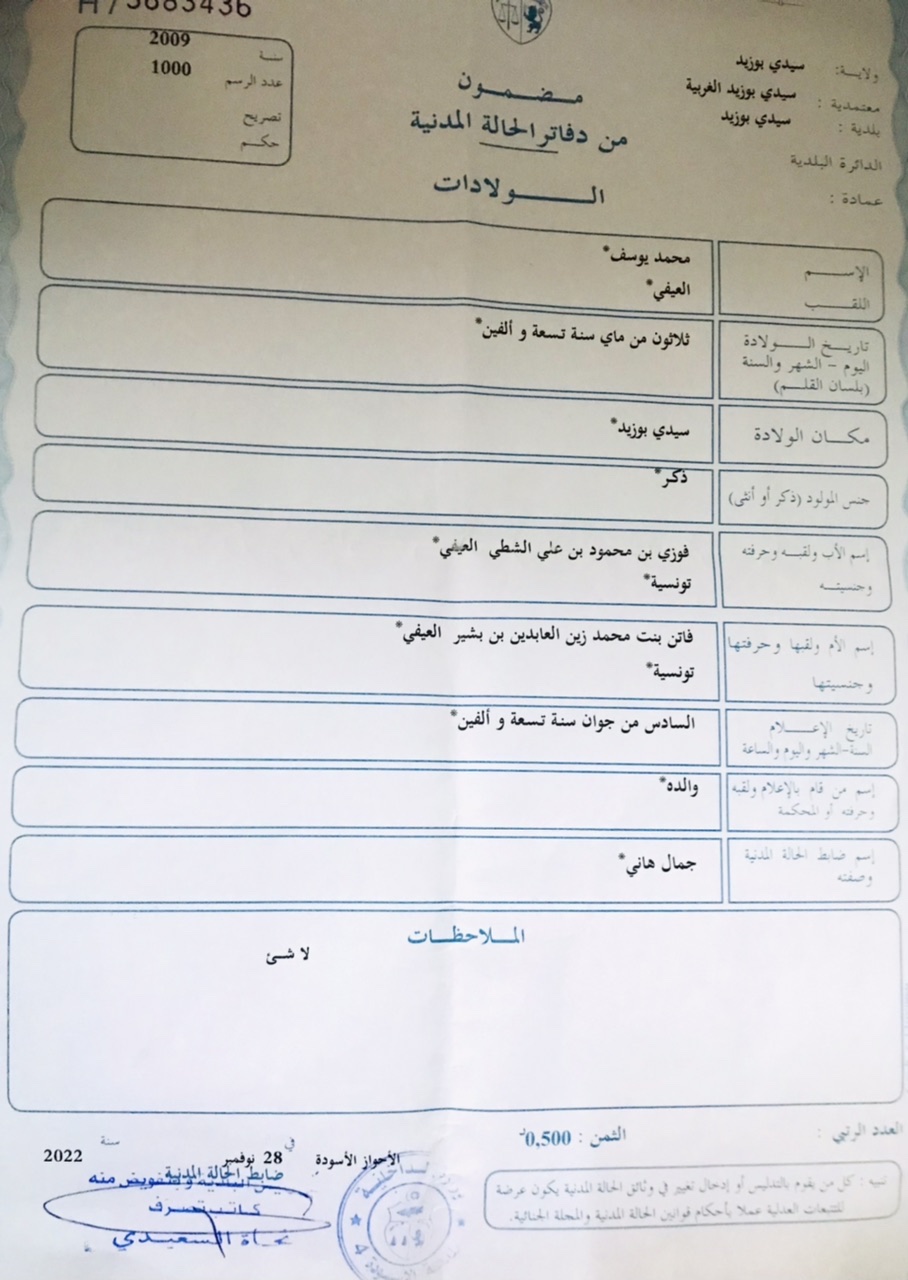 H/5683436
سنة 2009
عدد الرسم 1000
تصريح
حكم
مضمون
من دفاتر الحالة المدنية
الولادات
ولاية: سيدي بوزيد
معتمدية : سيدي بوزيد الغربية
بلدية : سيدي بوزيد
الدائرة البلدية
عمادة :
الإسم محمد يوسف*
اللقب العيفي*
تاريخ الولادة ثلاثون من ماي سنة تسعة و ألفين*
اليوم - الشهر والسنة
(بلسان القلم)
مكان الولادة سيدي بوزيد*
جنس المولود (ذكر أو أنثى) ذكر*
إسم الأب ولقبه وحرفته فوزي بن محمود بن علي الشطي العيفي*
وجنسيته تونسية*
إسم الأم ولقبها وحرفتها فاتن بنت محمد زين العابدين بن بشير العيفي*
وجنسيتها تونسية*
تاريخ الإعلام السادس من جوان سنة تسعة و ألفين*
السنة-الشهر واليوم والساعة
إسم من قام بالإعلام ولقبه والده*
وحرفته أو المحكمة
إسم ضابط الحالة المدنية جمال هاني*
وصفته
الملاحظات
لا شئ
العدد الرتبي :
الثمن : 0,500د
تنبيه : كل من يقوم بالتدليس أو إدخال تغيير في وثائق الحالة المدنية يكون عرضة
للتتبعات العدلية عملا بأحكام قوانين الحالة المدنية والمجلة الجنائية.
الأحواز الأسودة في 28 نوفمبر سنة 2022
ضابط الحالة المدنية
رئيس البلدية وبتفويض منه
كاتب تصرف
نجاة السعيدي